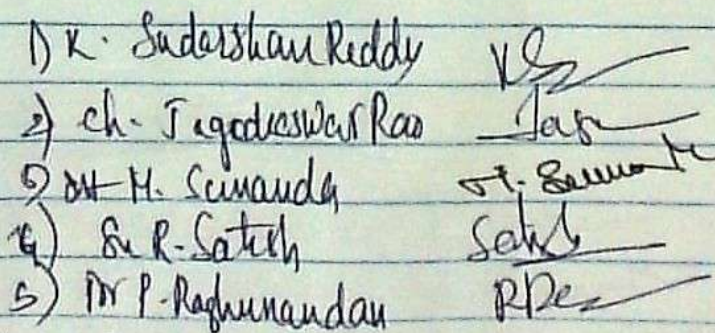 1) K. Sudarshan Reddy
2) Ch. Jagadeeswar Rao Jag
3) M. Sunanda M. Sunanda
4) Sri R. Satish Satish
5) Dr P. Raghunandan